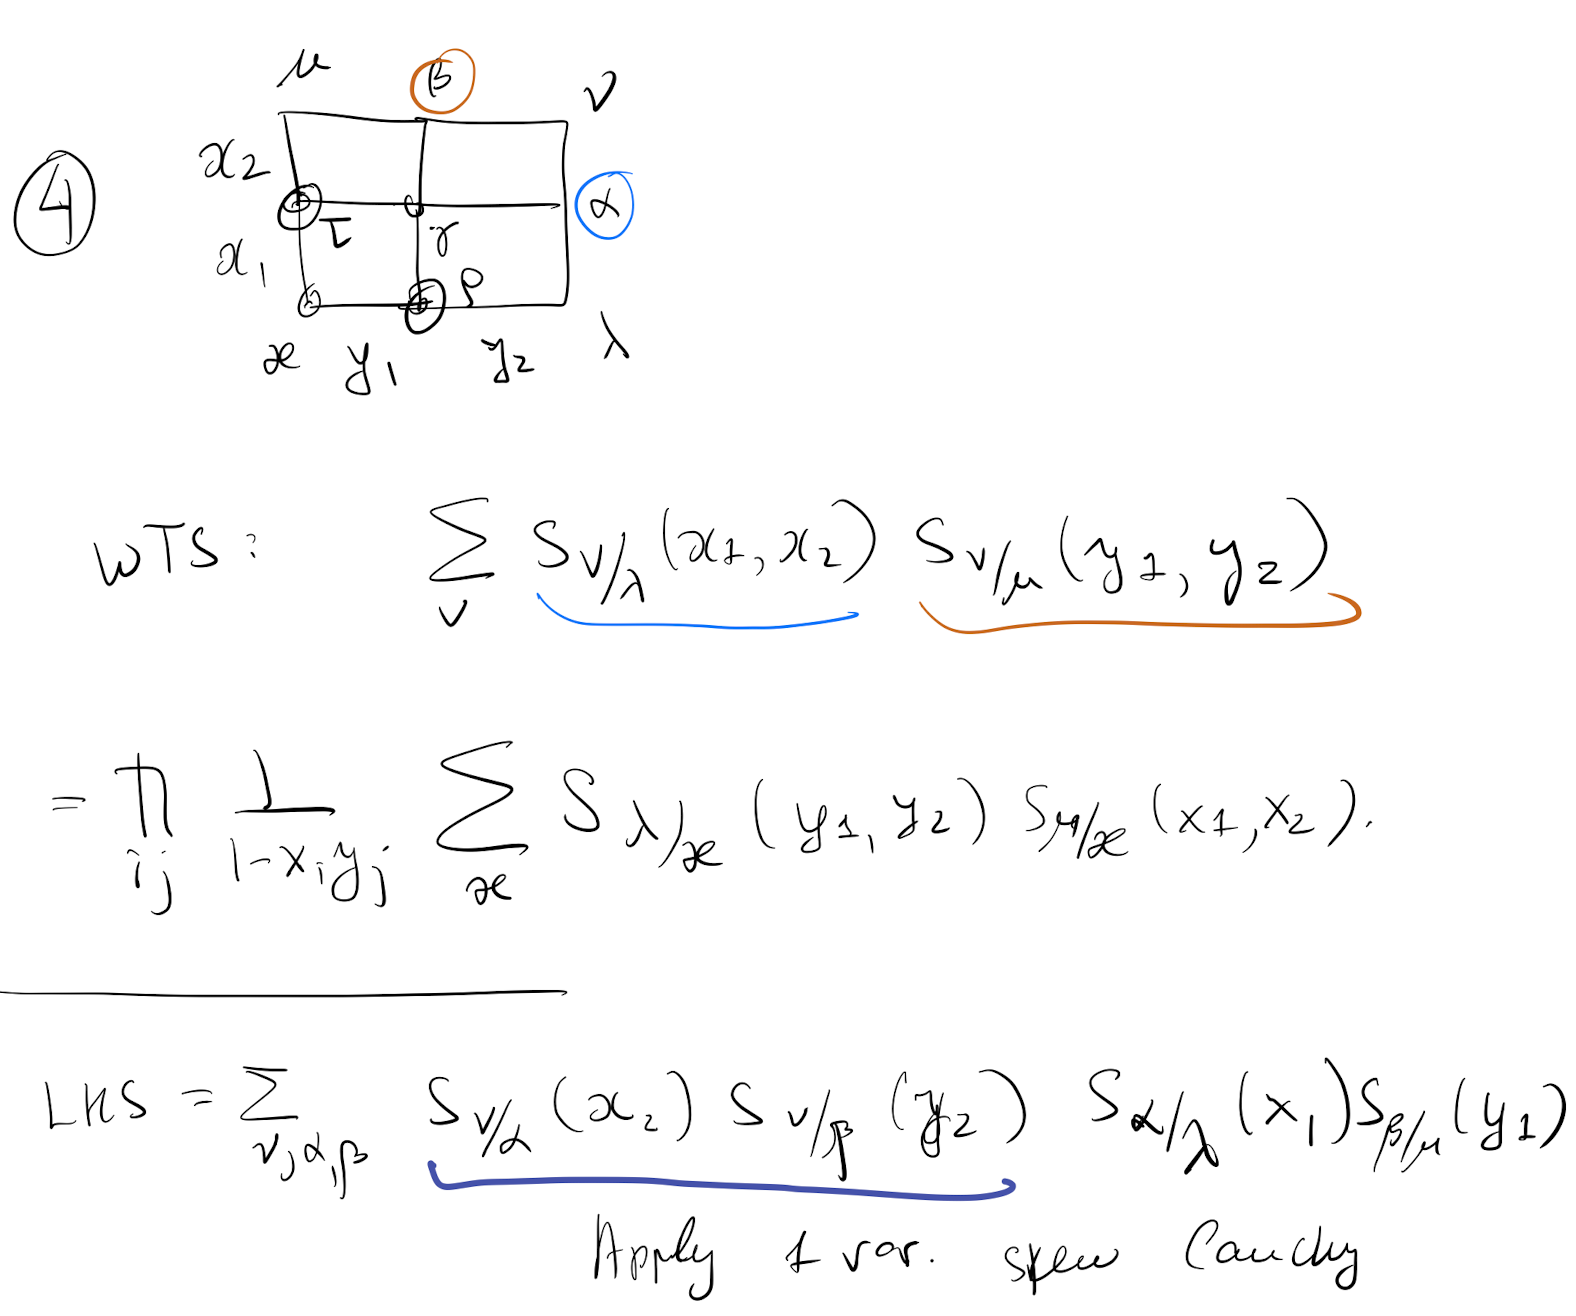 μ β ν
④ x₂ α
τ γ
x₁ ρ
ϰ y₁ y₂ λ
WTS: ∑_ν S_{ν/λ}(x₁, x₂) S_{ν/μ}(y₁, y₂)
= ∏_{ij} 1/(1-x_i y_j) ∑_ϰ S_{λ/ϰ}(y₁, y₂) S_{μ/ϰ}(x₁, x₂).
LHS = ∑_{ν,α,β} S_{ν/α}(x₂) S_{ν/β}(y₂) S_{α/λ}(x₁) S_{β/μ}(y₁)
Apply 1 var. skew Cauchy